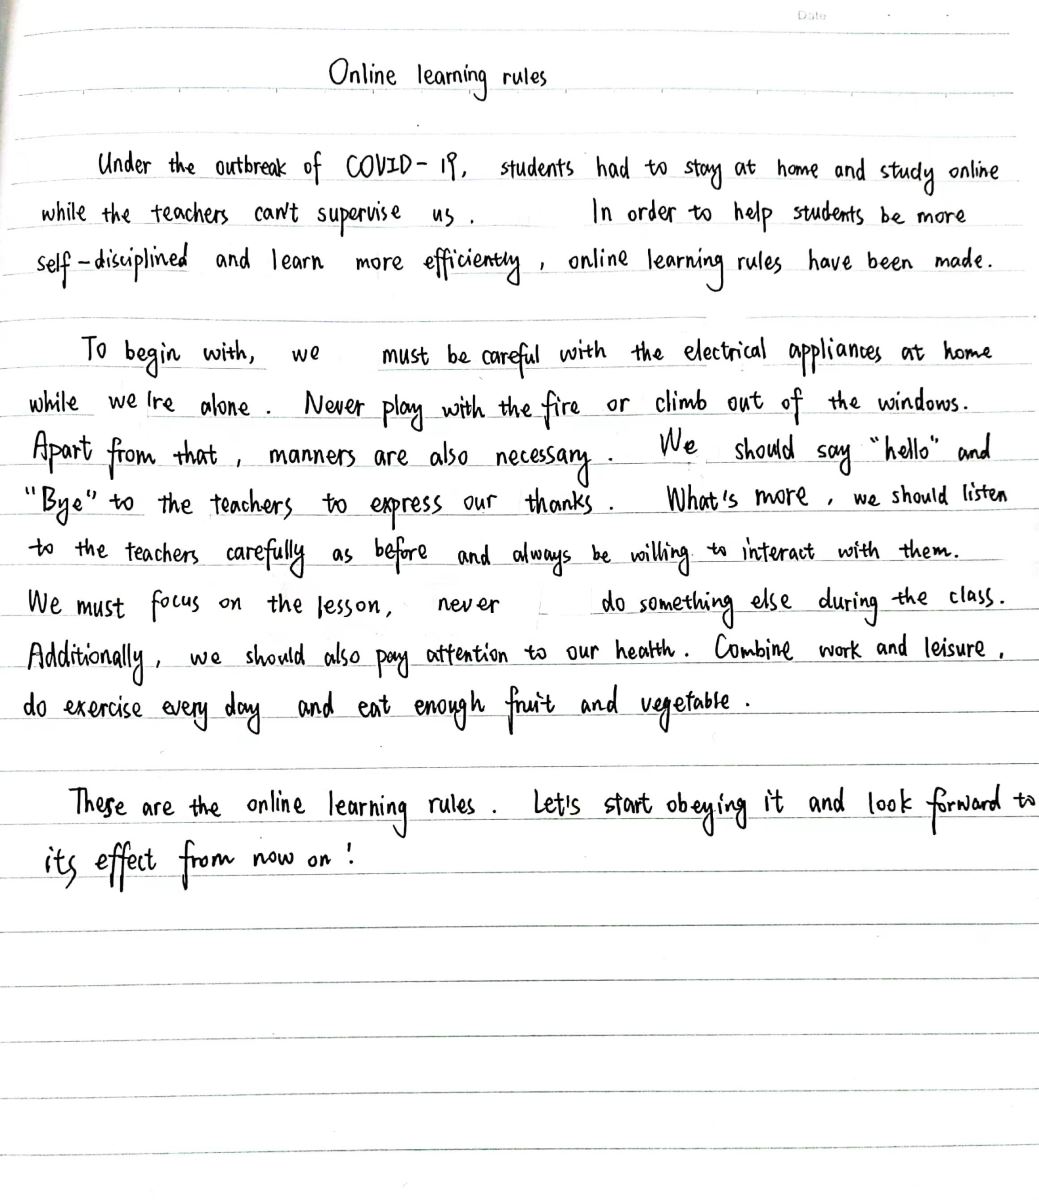 Date
Online learning rules
Under the outbreak of COVID-19, students had to stay at home and study online
while the teachers can't supervise us. In order to help students be more
self-disciplined and learn more efficiently, online learning rules have been made.
To begin with, we must be careful with the electrical appliances at home
while we're alone. Never play with the fire or climb out of the windows.
Apart from that, manners are also necessary. We should say "hello" and
"Bye" to the teachers to express our thanks. What's more, we should listen
to the teachers carefully as before and always be willing to interact with them.
We must focus on the lesson, never do something else during the class.
Additionally, we should also pay attention to our health. Combine work and leisure,
do exercise every day and eat enough fruit and vegetable.
These are the online learning rules. Let's start obeying it and look forward to
its effect from now on!